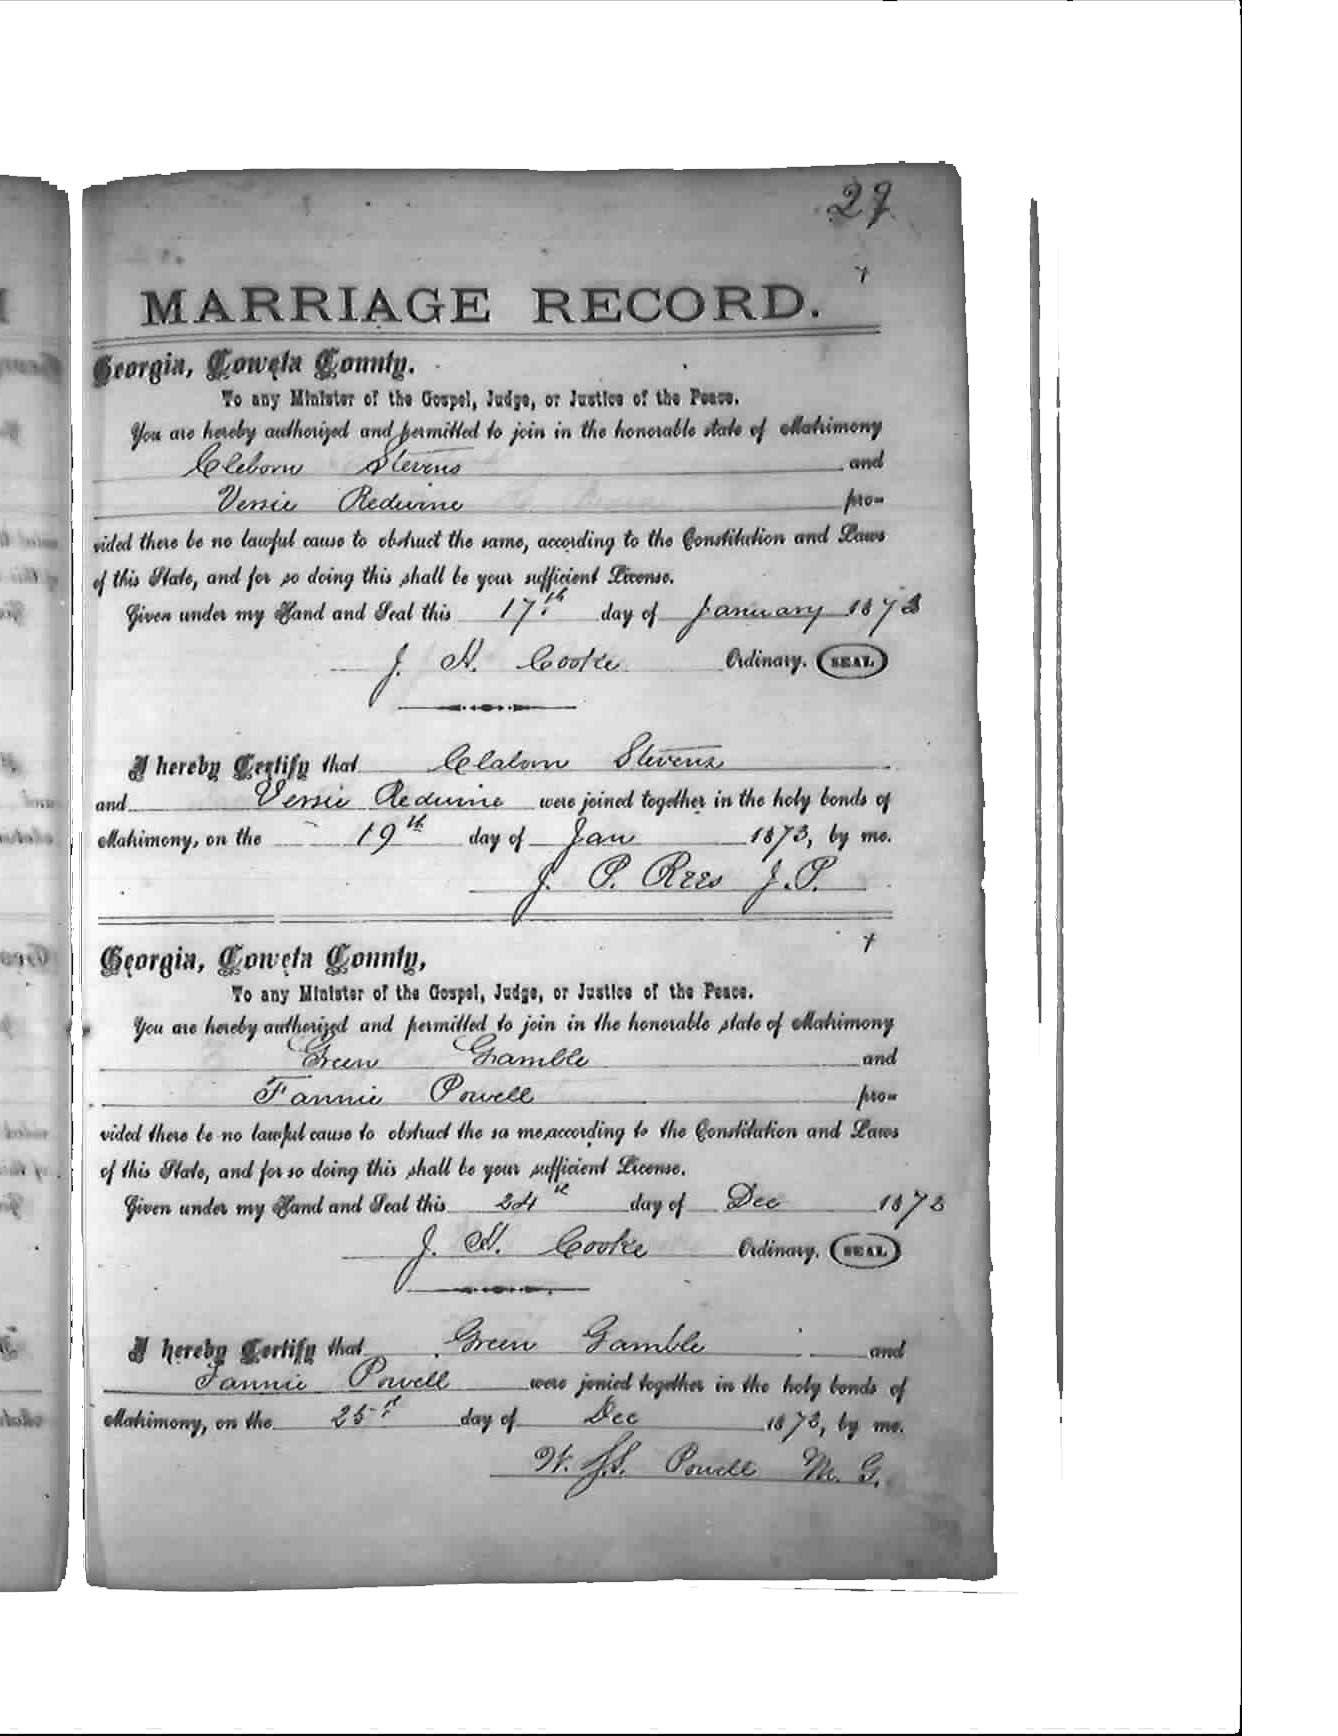 27
MARRIAGE RECORD.
Georgia, Coweta County.
To any Minister of the Gospel, Judge, or Justice of the Peace.
You are hereby authorized and permitted to join in the honorable state of Matrimony
Cleborn Stevens and
Versie Redwine pro-
vided there be no lawful cause to obstruct the same, according to the Constitution and Laws
of this State, and for so doing this shall be your sufficient License.
Given under my Hand and Seal this 17th day of January 1873
J. H. Cooke Ordinary. SEAL
I hereby Certify that Claborn Stevens
and Versie Redwine were joined together in the holy bonds of
Matrimony, on the 19th day of Jan 1873, by me.
J. P. Rees J.P.
Georgia, Coweta County,
To any Minister of the Gospel, Judge, or Justice of the Peace.
You are hereby authorized and permitted to join in the honorable state of Matrimony
Green Gamble and
Fannie Powell pro-
vided there be no lawful cause to obstruct the sa me,according to the Constitution and Laws
of this State, and for so doing this shall be your sufficient License.
Given under my Hand and Seal this 24th day of Dec 1873
J. H. Cooke Ordinary. SEAL
I hereby Certify that Green Gamble and
Fannie Powell were jonied together in the holy bonds of
Matrimony, on the 25th day of Dec 1873, by me.
W. Powell M. G.